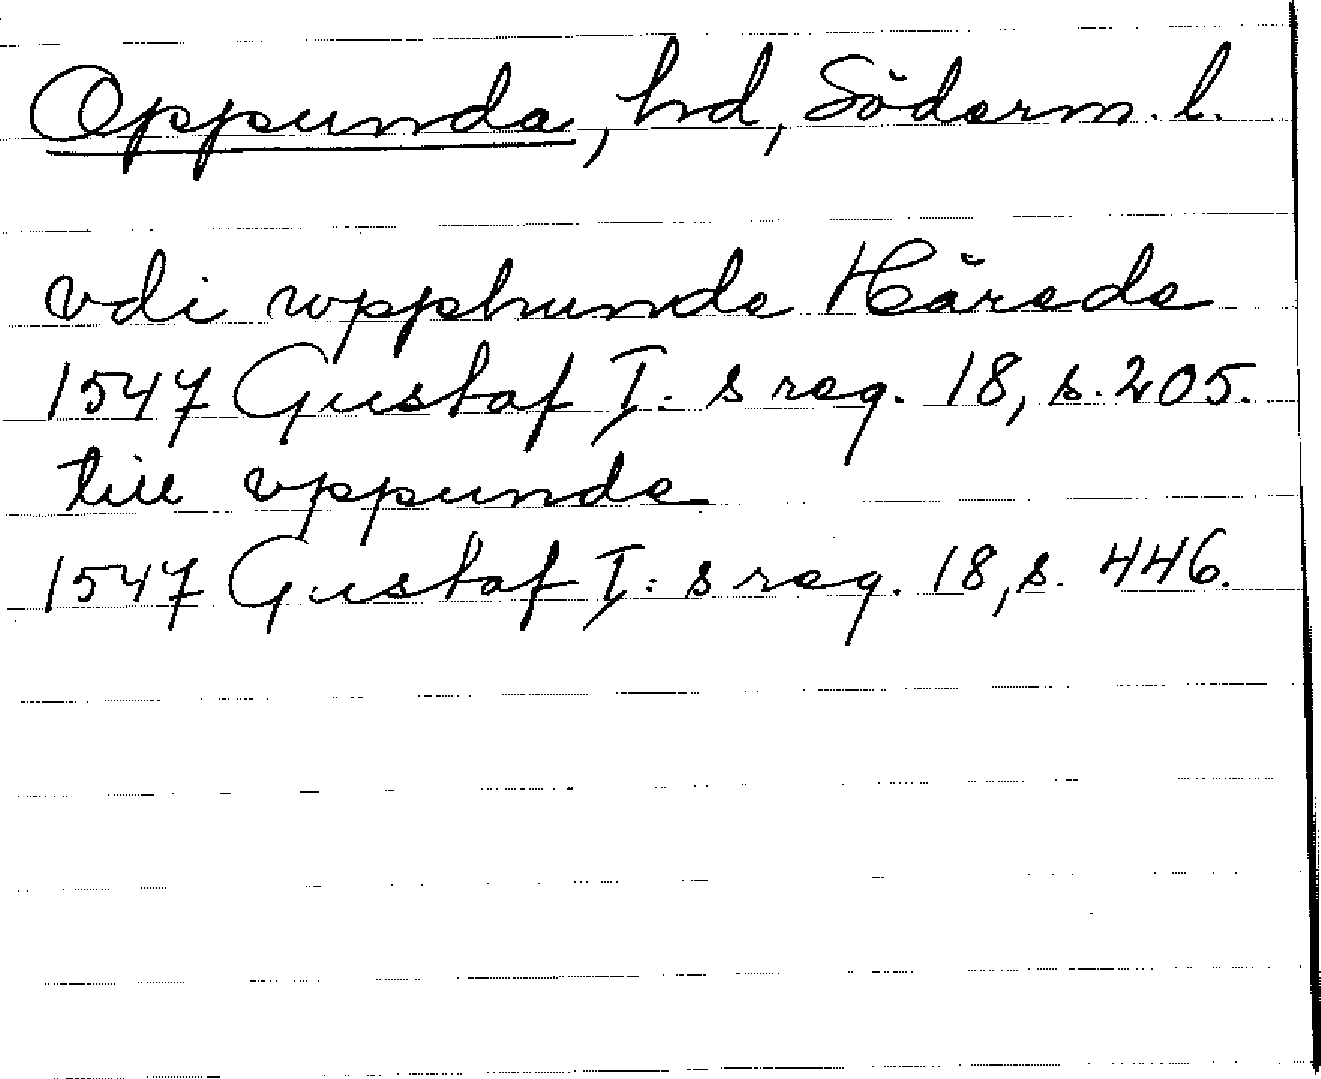 Oppunda, hd, Söderm. l.
vdi wpphunda Härade
1547 Gustaf I:s reg. 18, s. 205.
till vppunda
1547 Gustaf I:s reg. 18, s. 446.